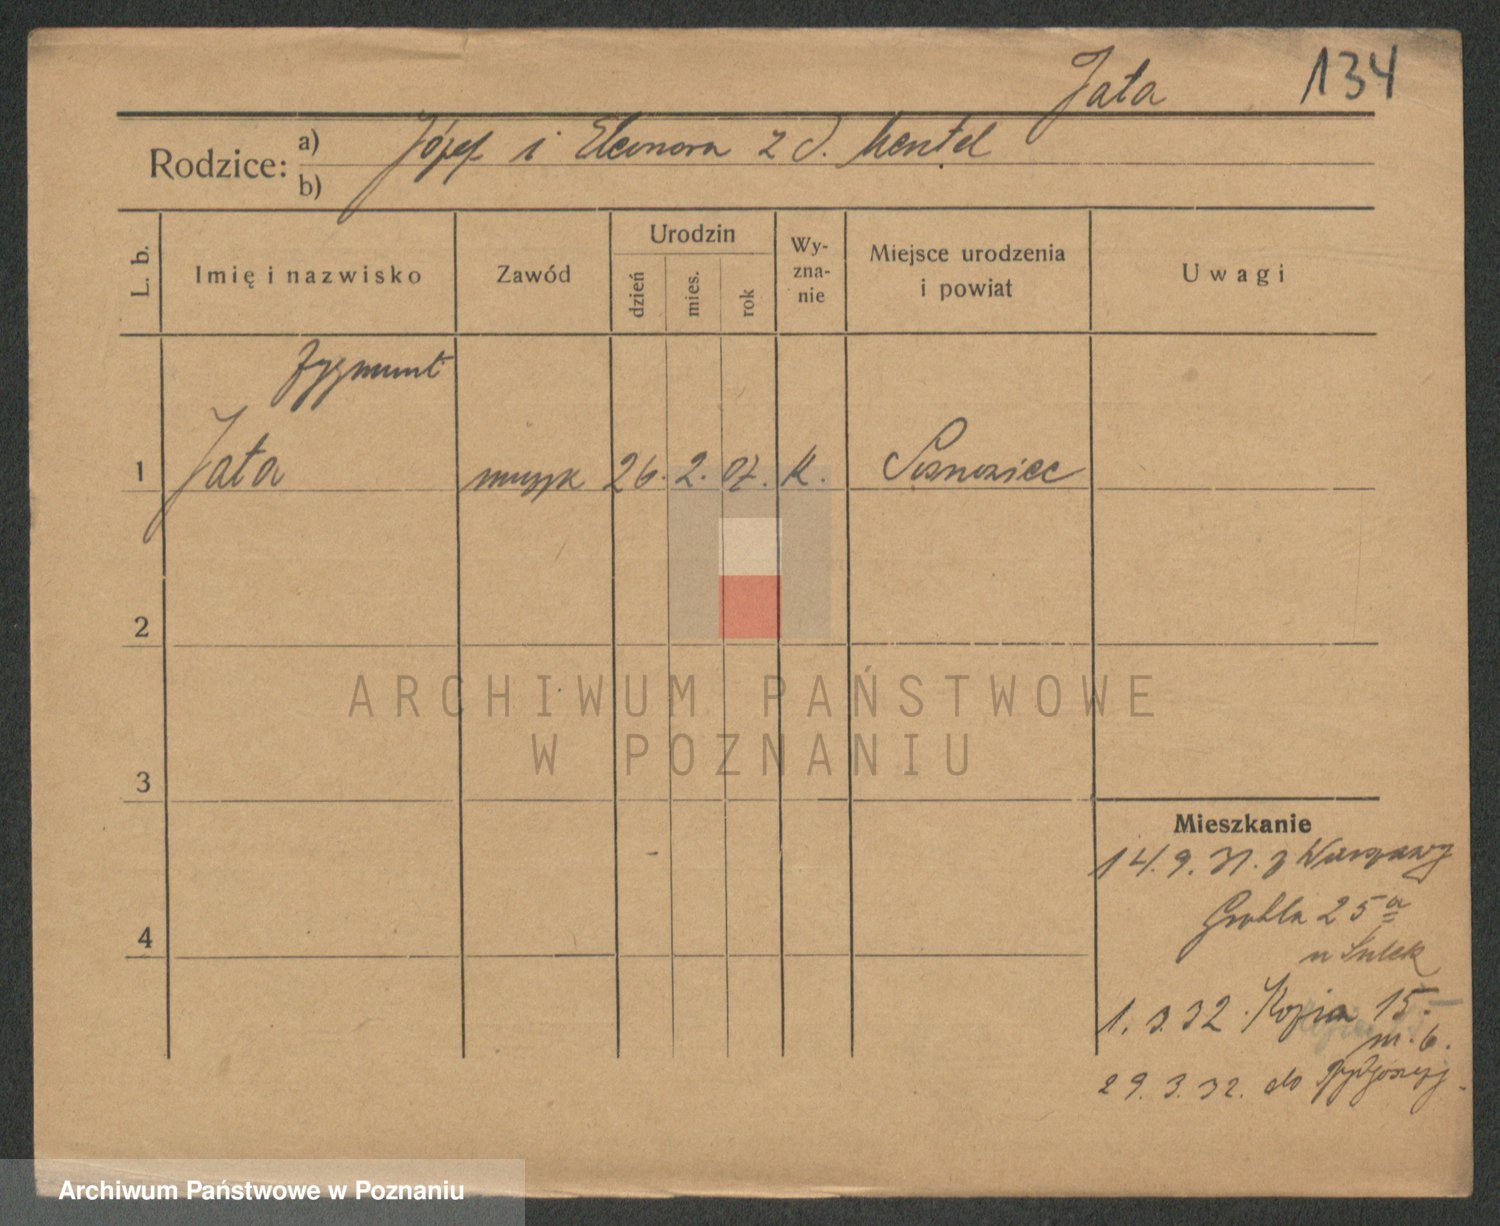 Jata 134
Rodzice: a) Józef i Eleonora z d. Mentel
b)
L. b. Imię i nazwisko Zawód Urodzin dzień mies. rok Wy-zna-nie Miejsce urodzenia i powiat Uwagi
Zygmunt
1 Jata muzyk 26. 2. 07. k. Sosnowiec
2
ARCHIWUM PAŃSTWOWE
W POZNANIU
3
Mieszkanie
14. 9. 31. z Warszawy
Grobla 25a
4
u Sulek
1. 3. 32 Kozia 15.
m. 6.
29. 3. 32. do Bydgoszczy
Archiwum Państwowe w Poznaniu